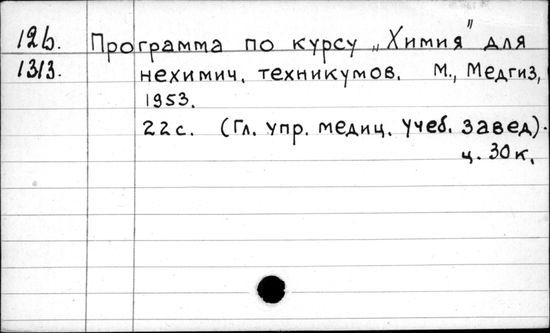 12б. Программа по курсу „Химия" для
1313. нехимич. техникумов. М., Медгиз,
1953.
22 с. (Гл. упр. медиц. учеб. завед).
ц. 30 к.